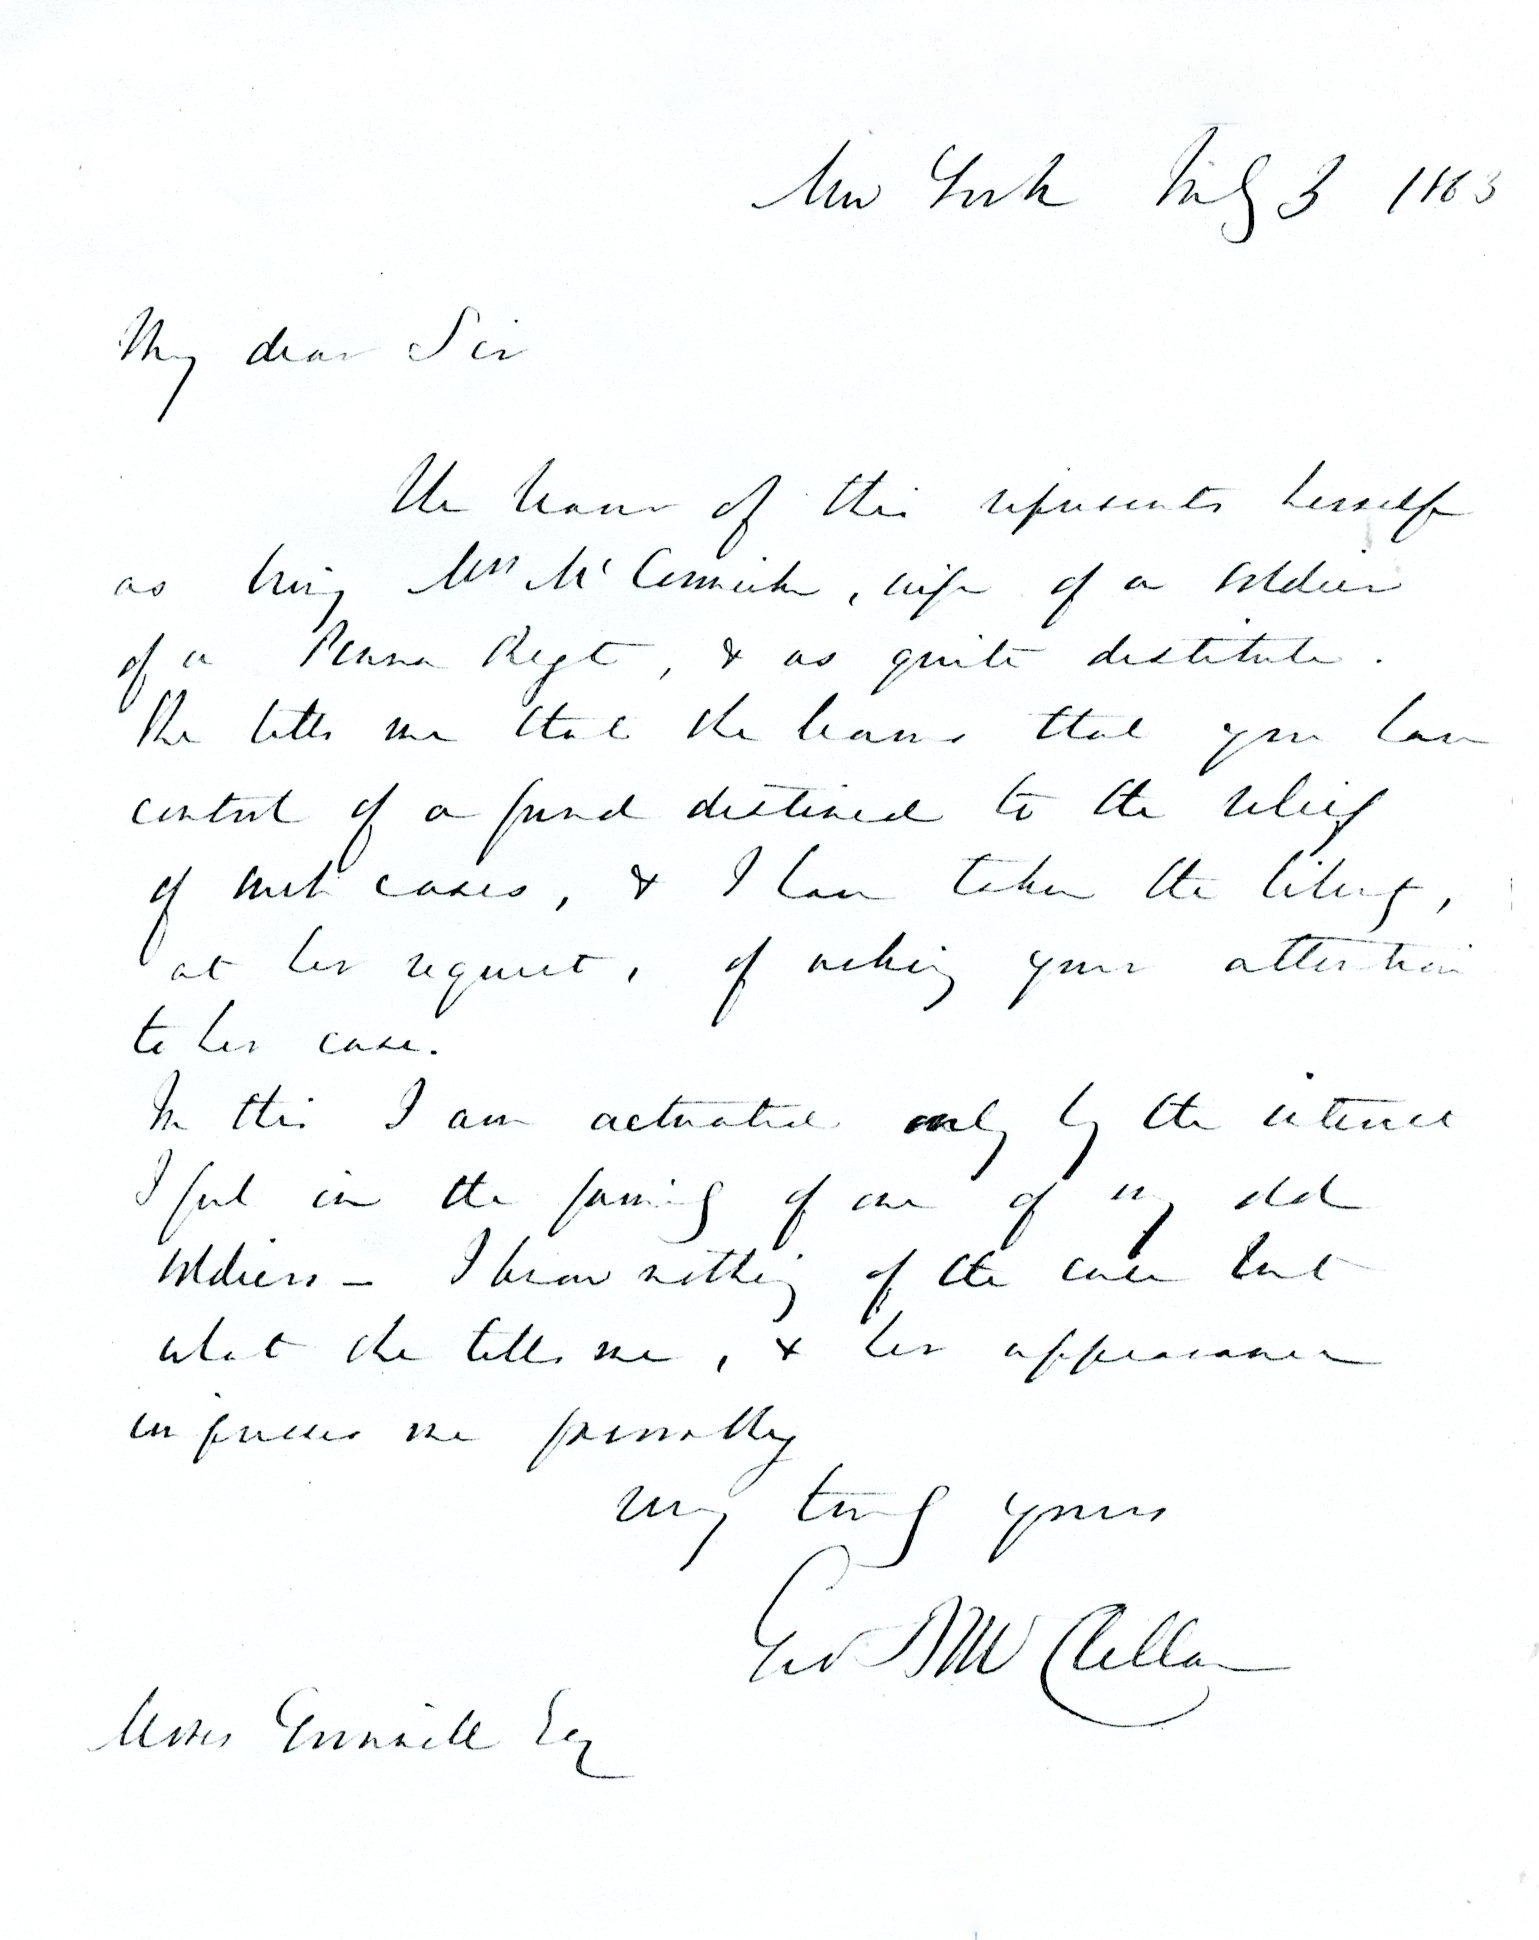 New York July 3 1863
My dear Sir
The bearer of this represents herself
as being Mrs McCormick, wife of a soldier
of a Penna Regt, & as quite destitute.
She tells me that she learns that you have
control of a fund destined to the relief
of such cases, & I have taken the liberty,
at her request, of asking your attention
to her case.
In this I am actuated only by the interest
I feel in the family of one of my old
soldiers — I know nothing of the case but
what she tells me, & her appearance
impresses me favorably
very truly yours
Geo B McClellan
Moses Grinnell Esq